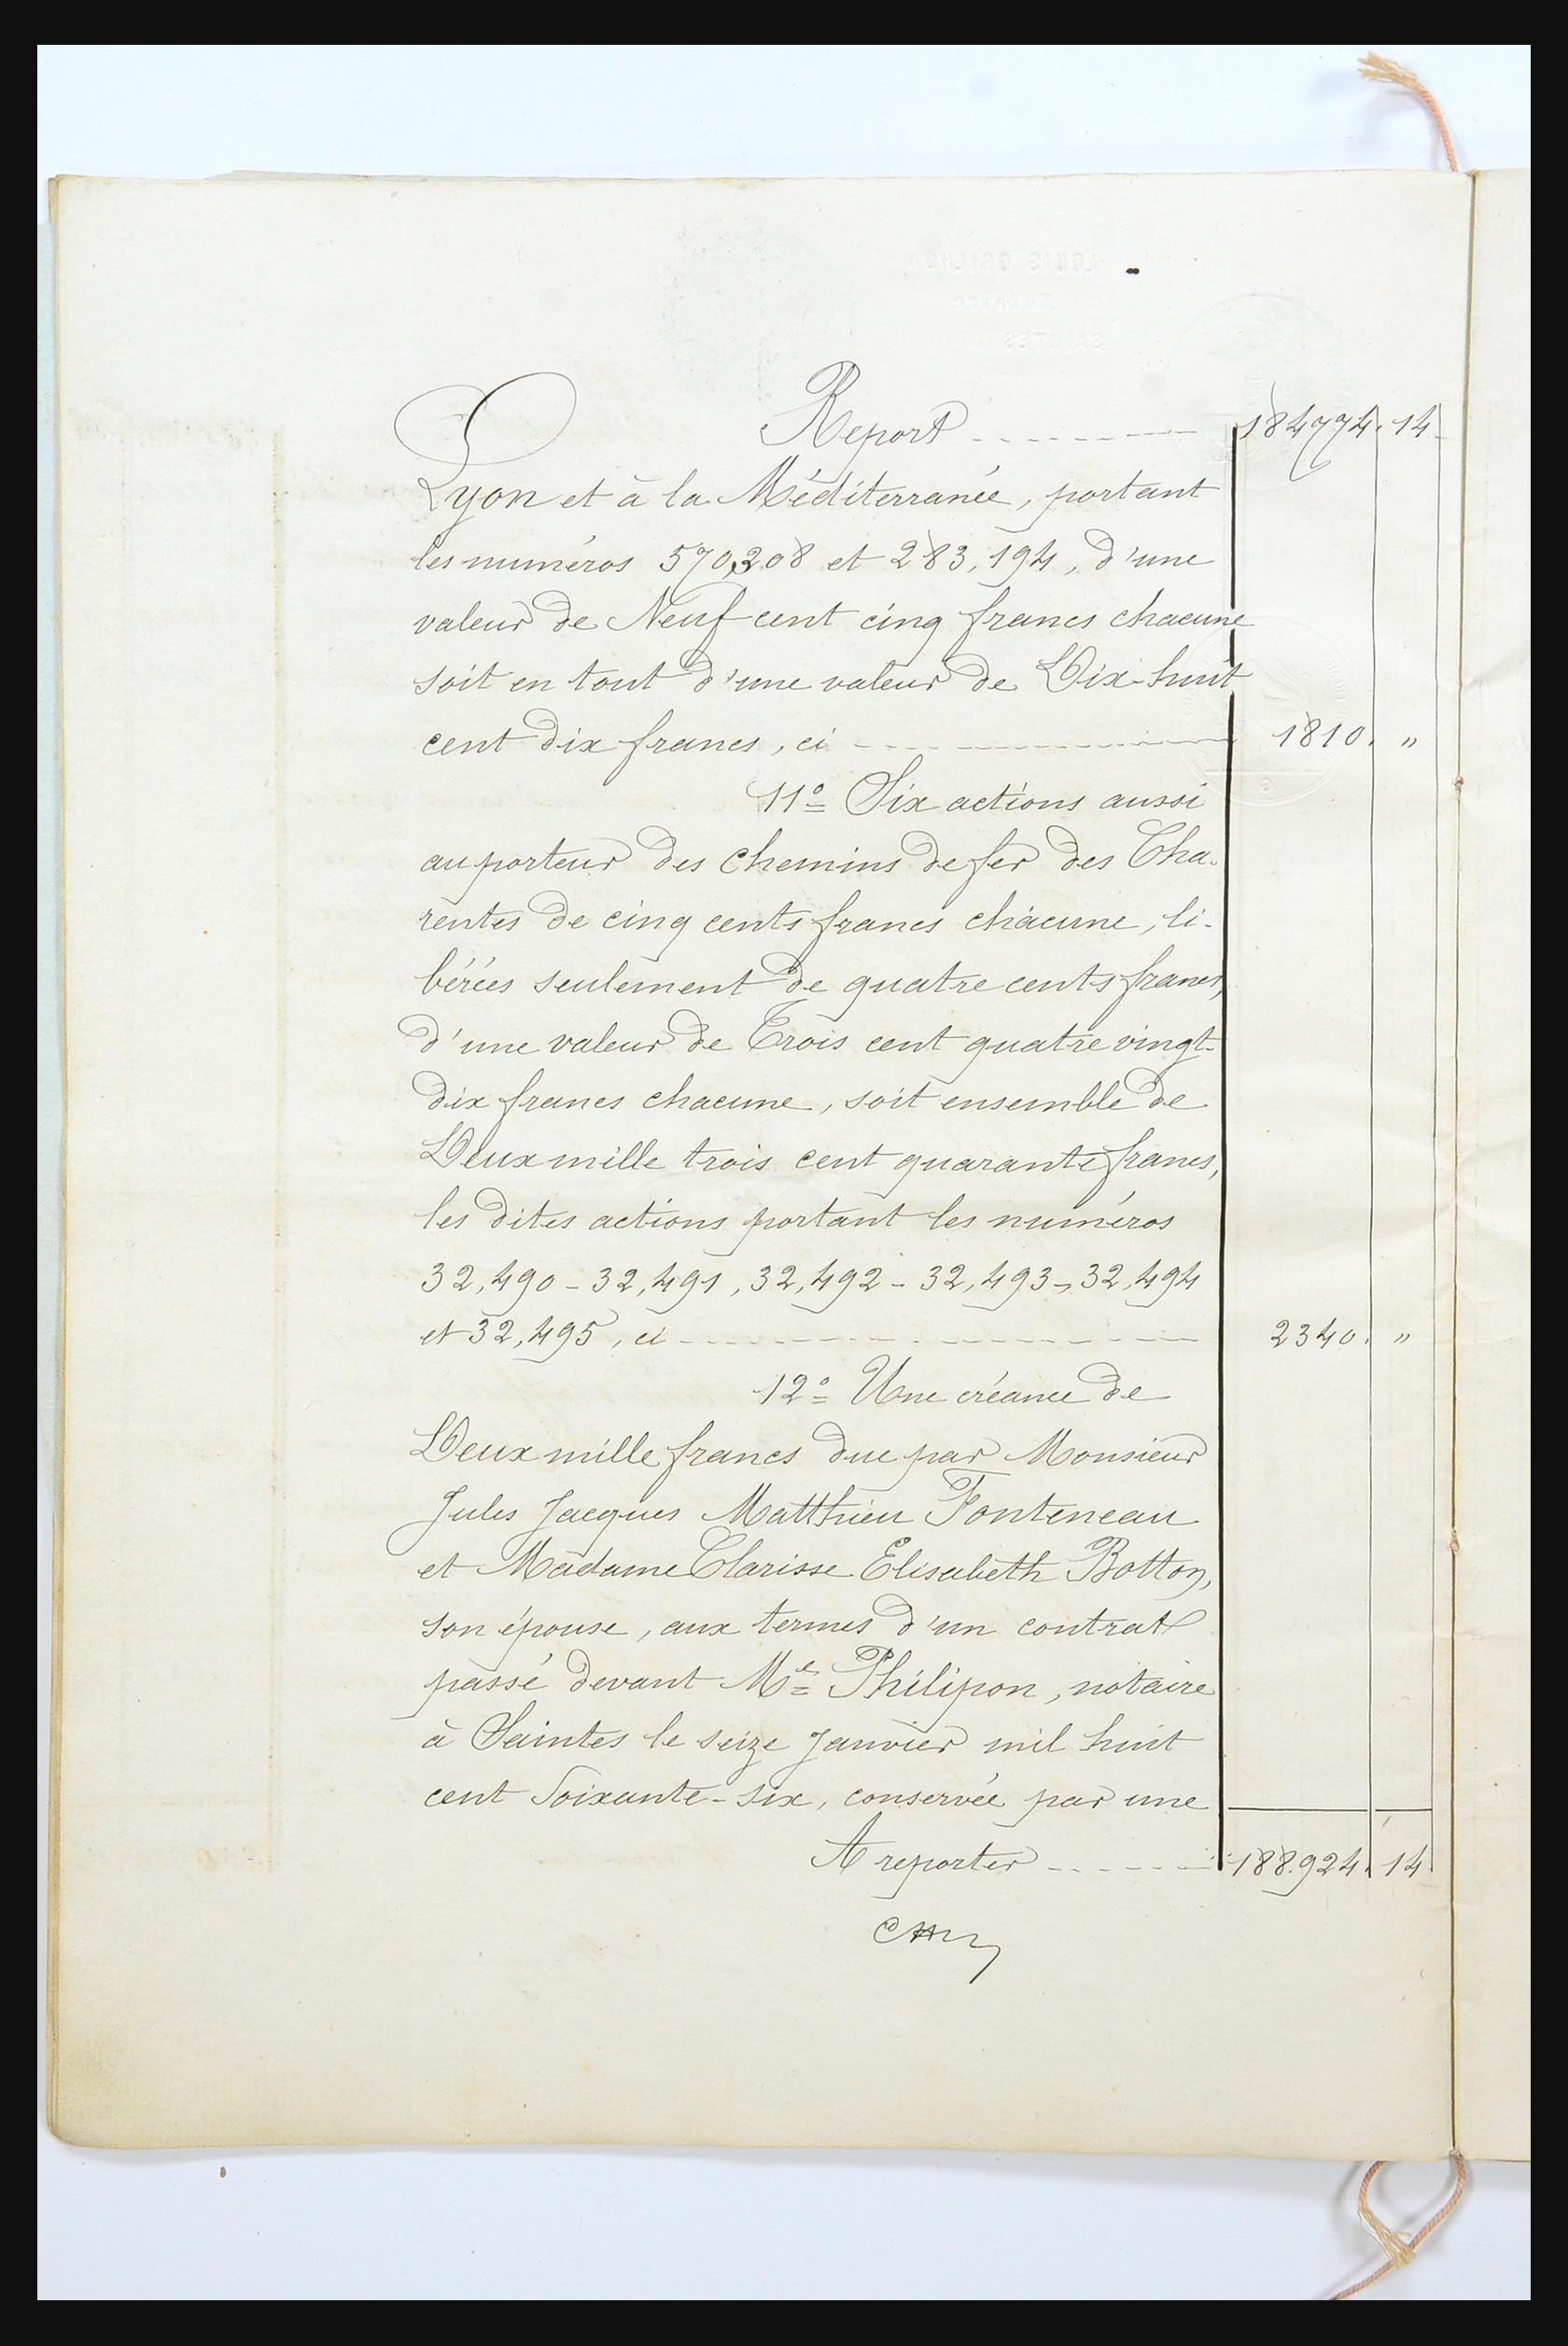 Report 184774. 14
Lyon et à la Méditerranée, portant
les numéros 570,208 et 283,194, d'une
valeur de Neuf cent cinq francs chacune
soit en tout d'une valeur de Dix-huit
cent dix francs, ci 1810. "
11º Six actions aussi
au porteur des chemins de fer des Cha-
rentes de cinq cents francs chacune, li-
bérées seulement de quatre cents francs,
d'une valeur de Trois cent quatre vingt-
dix francs chacune, soit ensemble de
Deux mille trois cent quarante francs,
les dites actions portant les numéros
32,490 - 32,491, 32,492 - 32,493 - 32,494
et 32,495, ci 2340. "
12º Une créance de
Deux mille francs due par Monsieur
Jules Jacques Matthieu Fonteneau
et Madame Clarisse Elisabeth Botton,
son épouse, aux termes d'un contrat
passé devant Me Philipon, notaire
à Saintes le seize Janvier mil huit
cent soixante-six, conservée par une
A reporter 188.924. 14